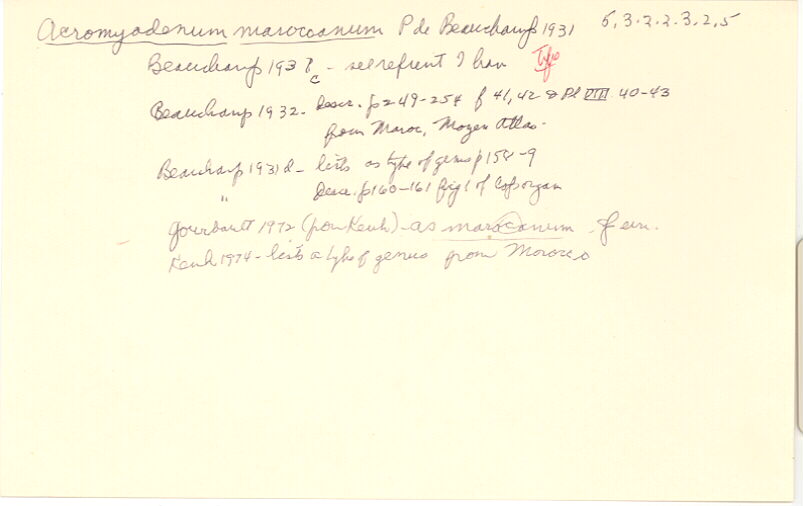 Acromyadenum maroccanum P de Beauchamp 1931 5,3.2.2.3.2,5
Beauchamp 193 ? c - see reprint I have Type
Beauchamp 1932 - Descr. p249-254 f 41,42 & Pl VIII 40-43
from Maroc, Moyen Atlas.
Beauchamp 1931d - lists as type of genus p158-9
" Descr. p160-161 fig 1 of Cop organ
Gourbault 1972 (from Kenk) - as marocanum
Kenk 1974 - lists as type of genus from Morocco